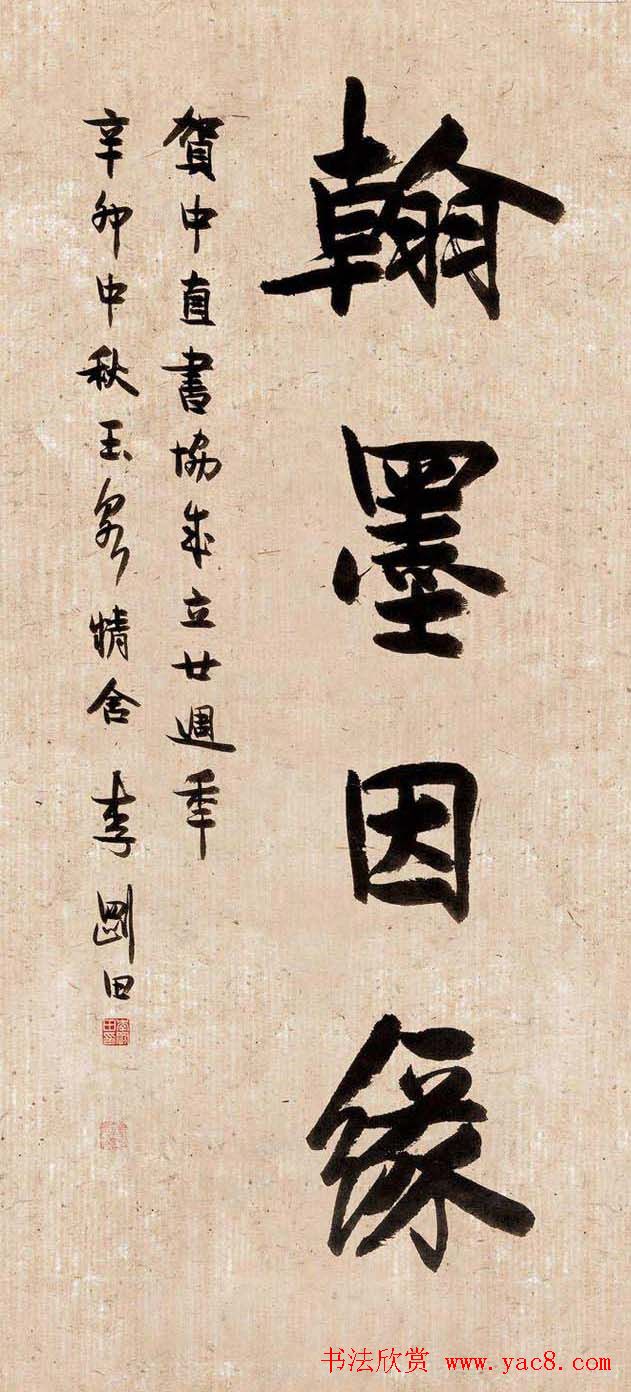 翰墨因缘
賀中直書協成立廿週年
辛卯中秋玉泉精舍 李剛田
书法欣赏 www.yac8.com